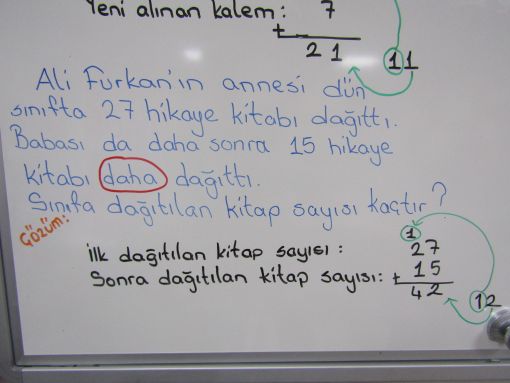 Yeni alınan kalem : 7
+
21
11
Ali Furkan'ın annesi dün
sınıfta 27 hikaye kitabı dağıttı.
Babası da daha sonra 15 hikaye
kitabı daha dağıttı.
Sınıfa dağıtılan kitap sayısı kaçtır?
ÇÖZÜM:
1
İlk dağıtılan kitap sayısı : 27
Sonra dağıtılan kitap sayısı: + 15
42
12